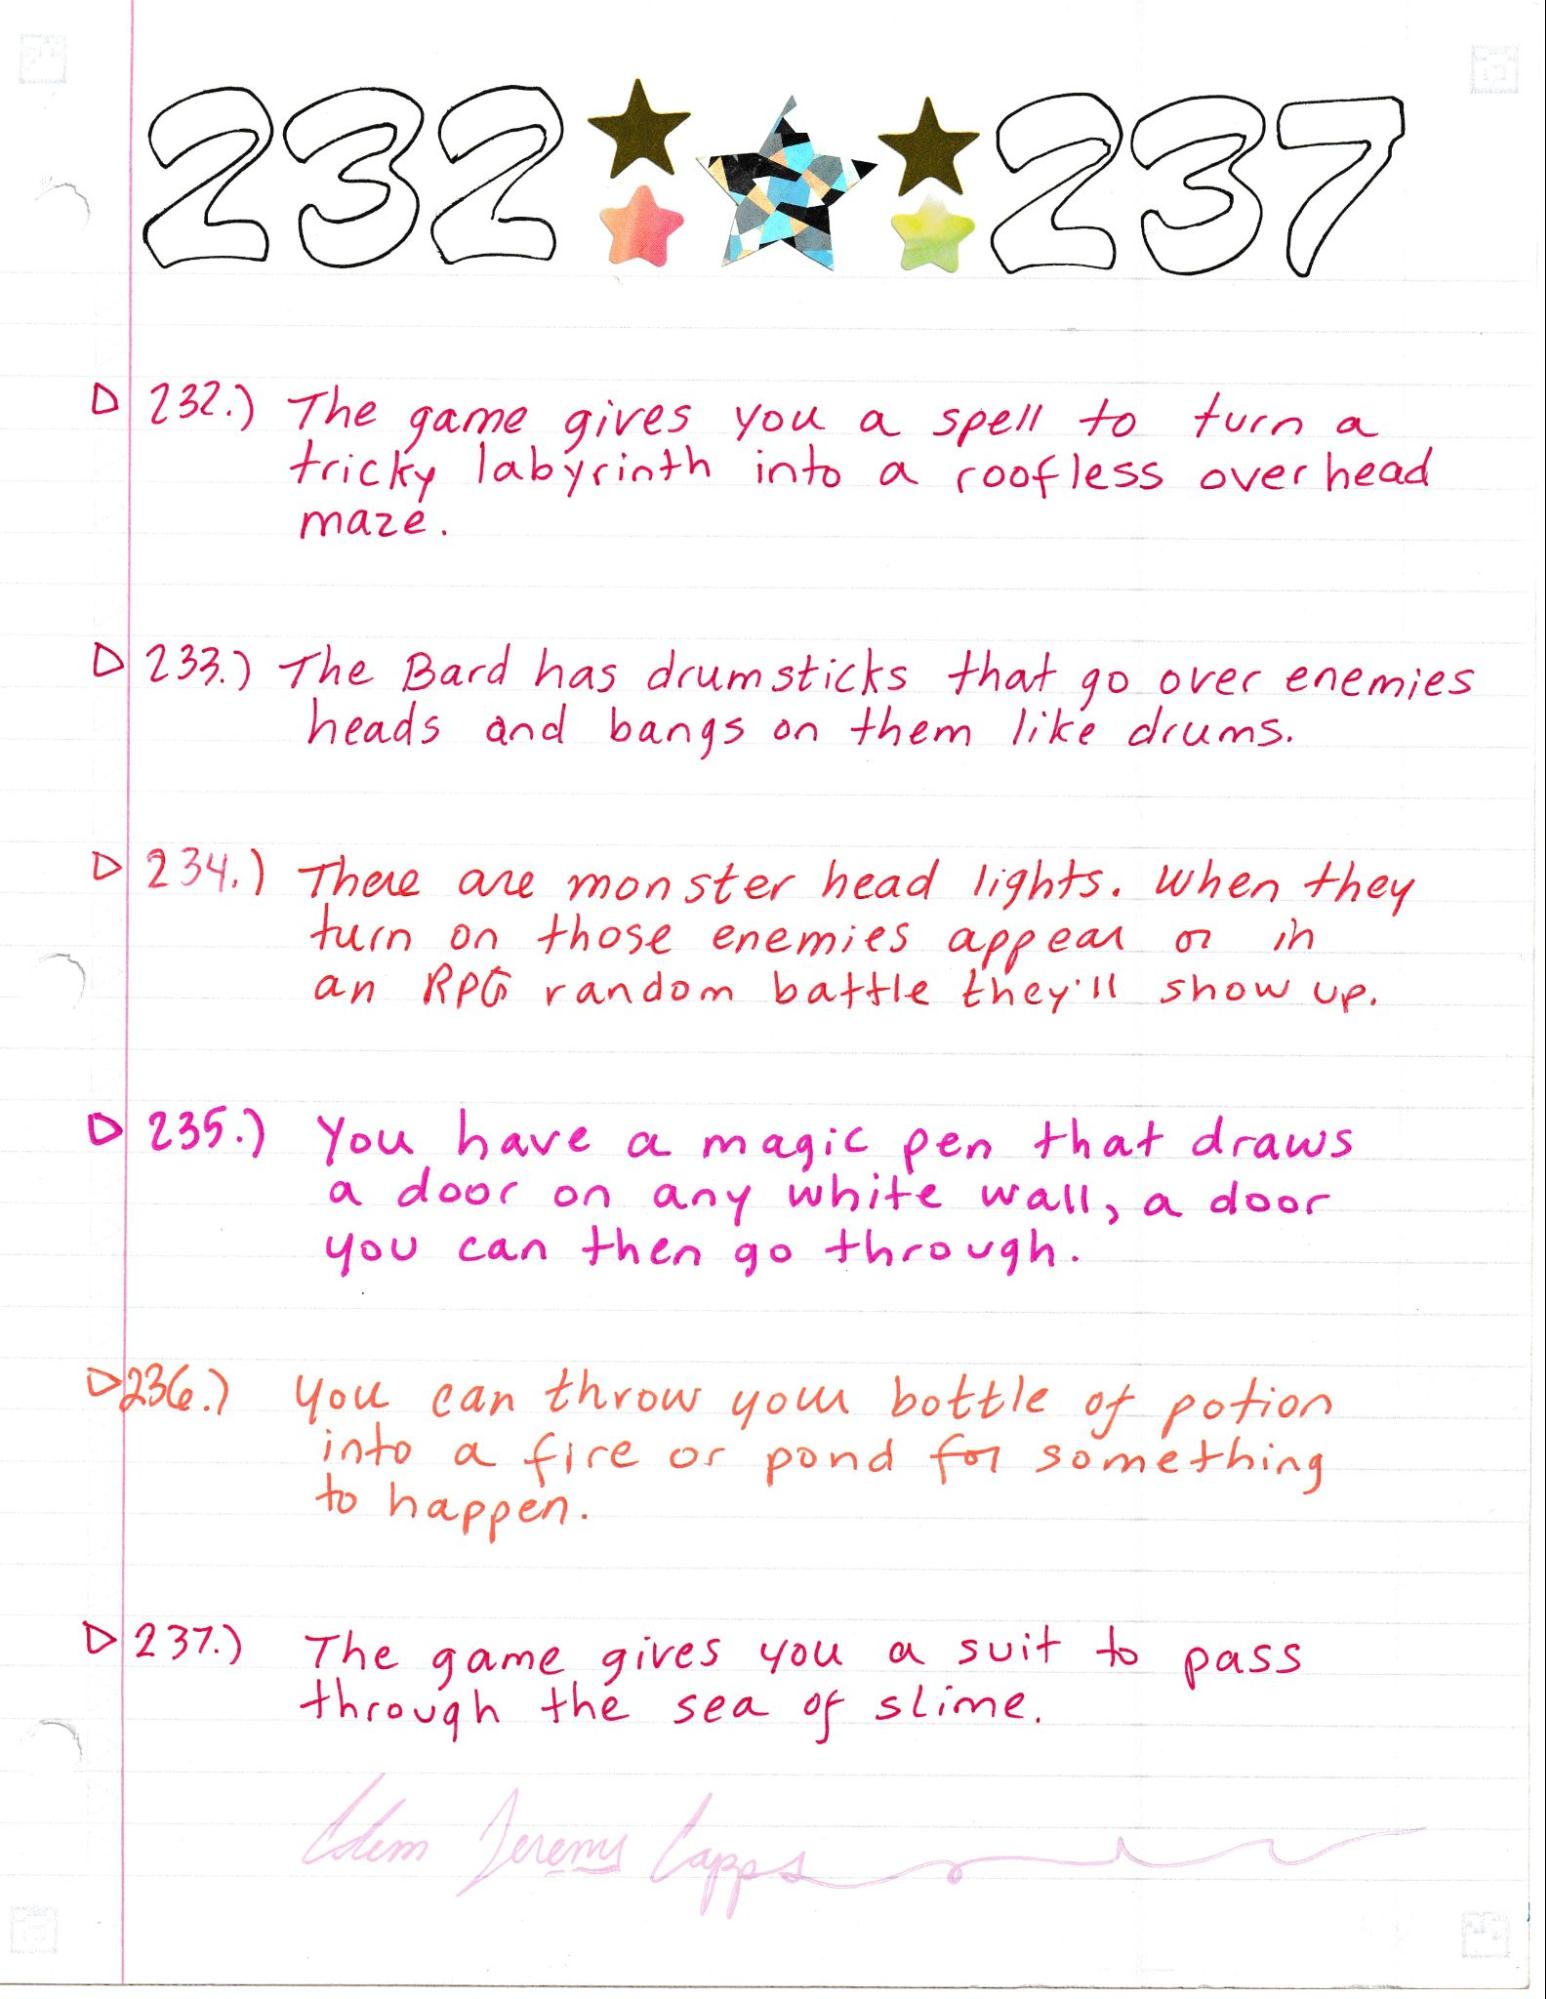 232 237
232.) The game gives you a spell to turn a
tricky labyrinth into a roofless overhead
maze.
233.) The Bard has drumsticks that go over enemies
heads and bangs on them like drums.
234.) There are monster head lights. When they
turn on those enemies appear or in
an RPG random battle they'll show up.
235.) You have a magic pen that draws
a door on any white wall, a door
you can then go through.
236.) You can throw your bottle of potion
into a fire or pond for something
to happen.
237.) The game gives you a suit to pass
through the sea of slime.
Adam Jeremy Capps